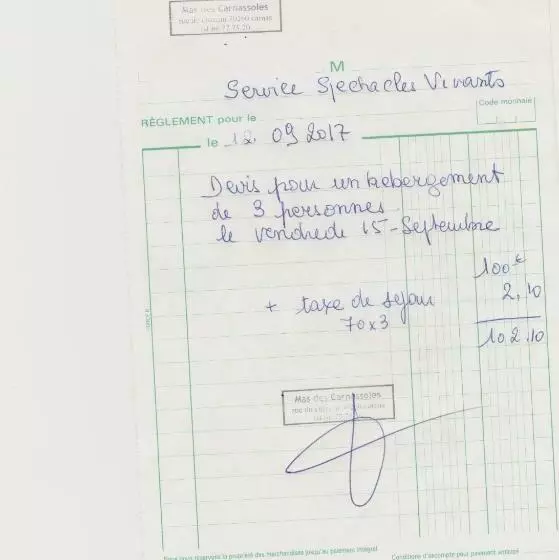 Mas des Carnassoles
M
Service Spectacles Vivants
Code monnaie
RÈGLEMENT pour le
le 12. 09 2017
Devis pour un hebergement
de 3 personnes
le vendredi 15 - Septembre
100€
+ taxe de sejour 2,10
70x3
102.10
Mas des Carnassoles
Nous nous réservons la propriété des marchandises jusqu'au paiement intégral
Conditions d'escompte pour paiement anticipé